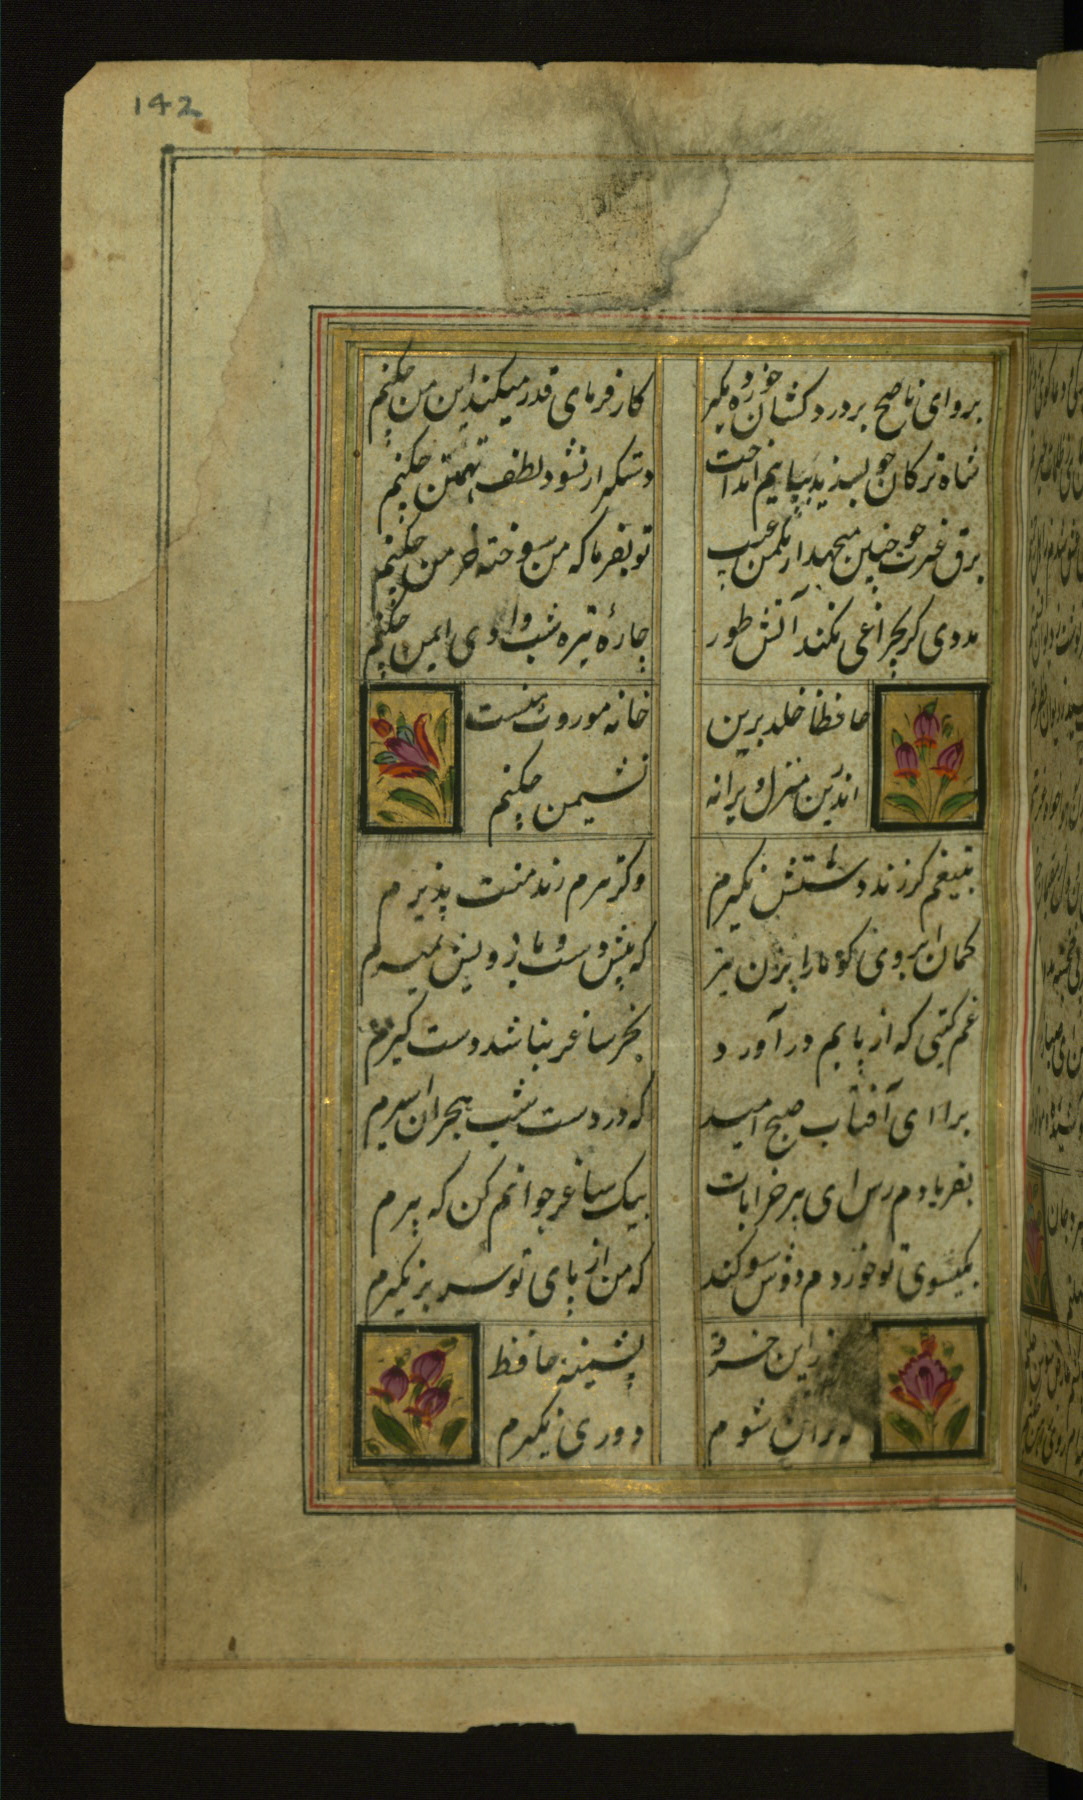 142
برو ای ناصح بر دردکشان خورده مگیر
کارفرمای قدر میکند این من چکنم
شاه ترکان چو پسندید بچاهم انداخت
دستگیر ار نشود لطف تهمتن چکنم
برق غیرت چو چنین میجهد از مکمن غیب
تو بفرما که من سوخته خرمن چکنم
مددی گر بچراغی نکند آتش طور
چارهٔ تیره شب وادی ایمن چکنم
حافظا خلد برین
خانه موروث منست
اندرین منزل ویرانه
نشیمن چکنم
بتیغم گر زند دستش نگیرم
وگر تیرم زند منت پذیرم
کمان ابروی کو ما را بزن تیر
که پیش دست و بازویش بمیرم
غم گیتی که از پایم درآورد
بجز ساغر نباشد دستگیرم
برا ای آفتاب صبح امید
که در دست شب هجران اسیرم
بفریادم رس ای پیر خرابات
بیک ساغر جوانم کن که پیرم
بگیسوی تو خوردم دوش سوگند
که من از پای تو سر بر نگیرم
این خرقه
پشمینه حافظ
شوم
دوری نگیرم